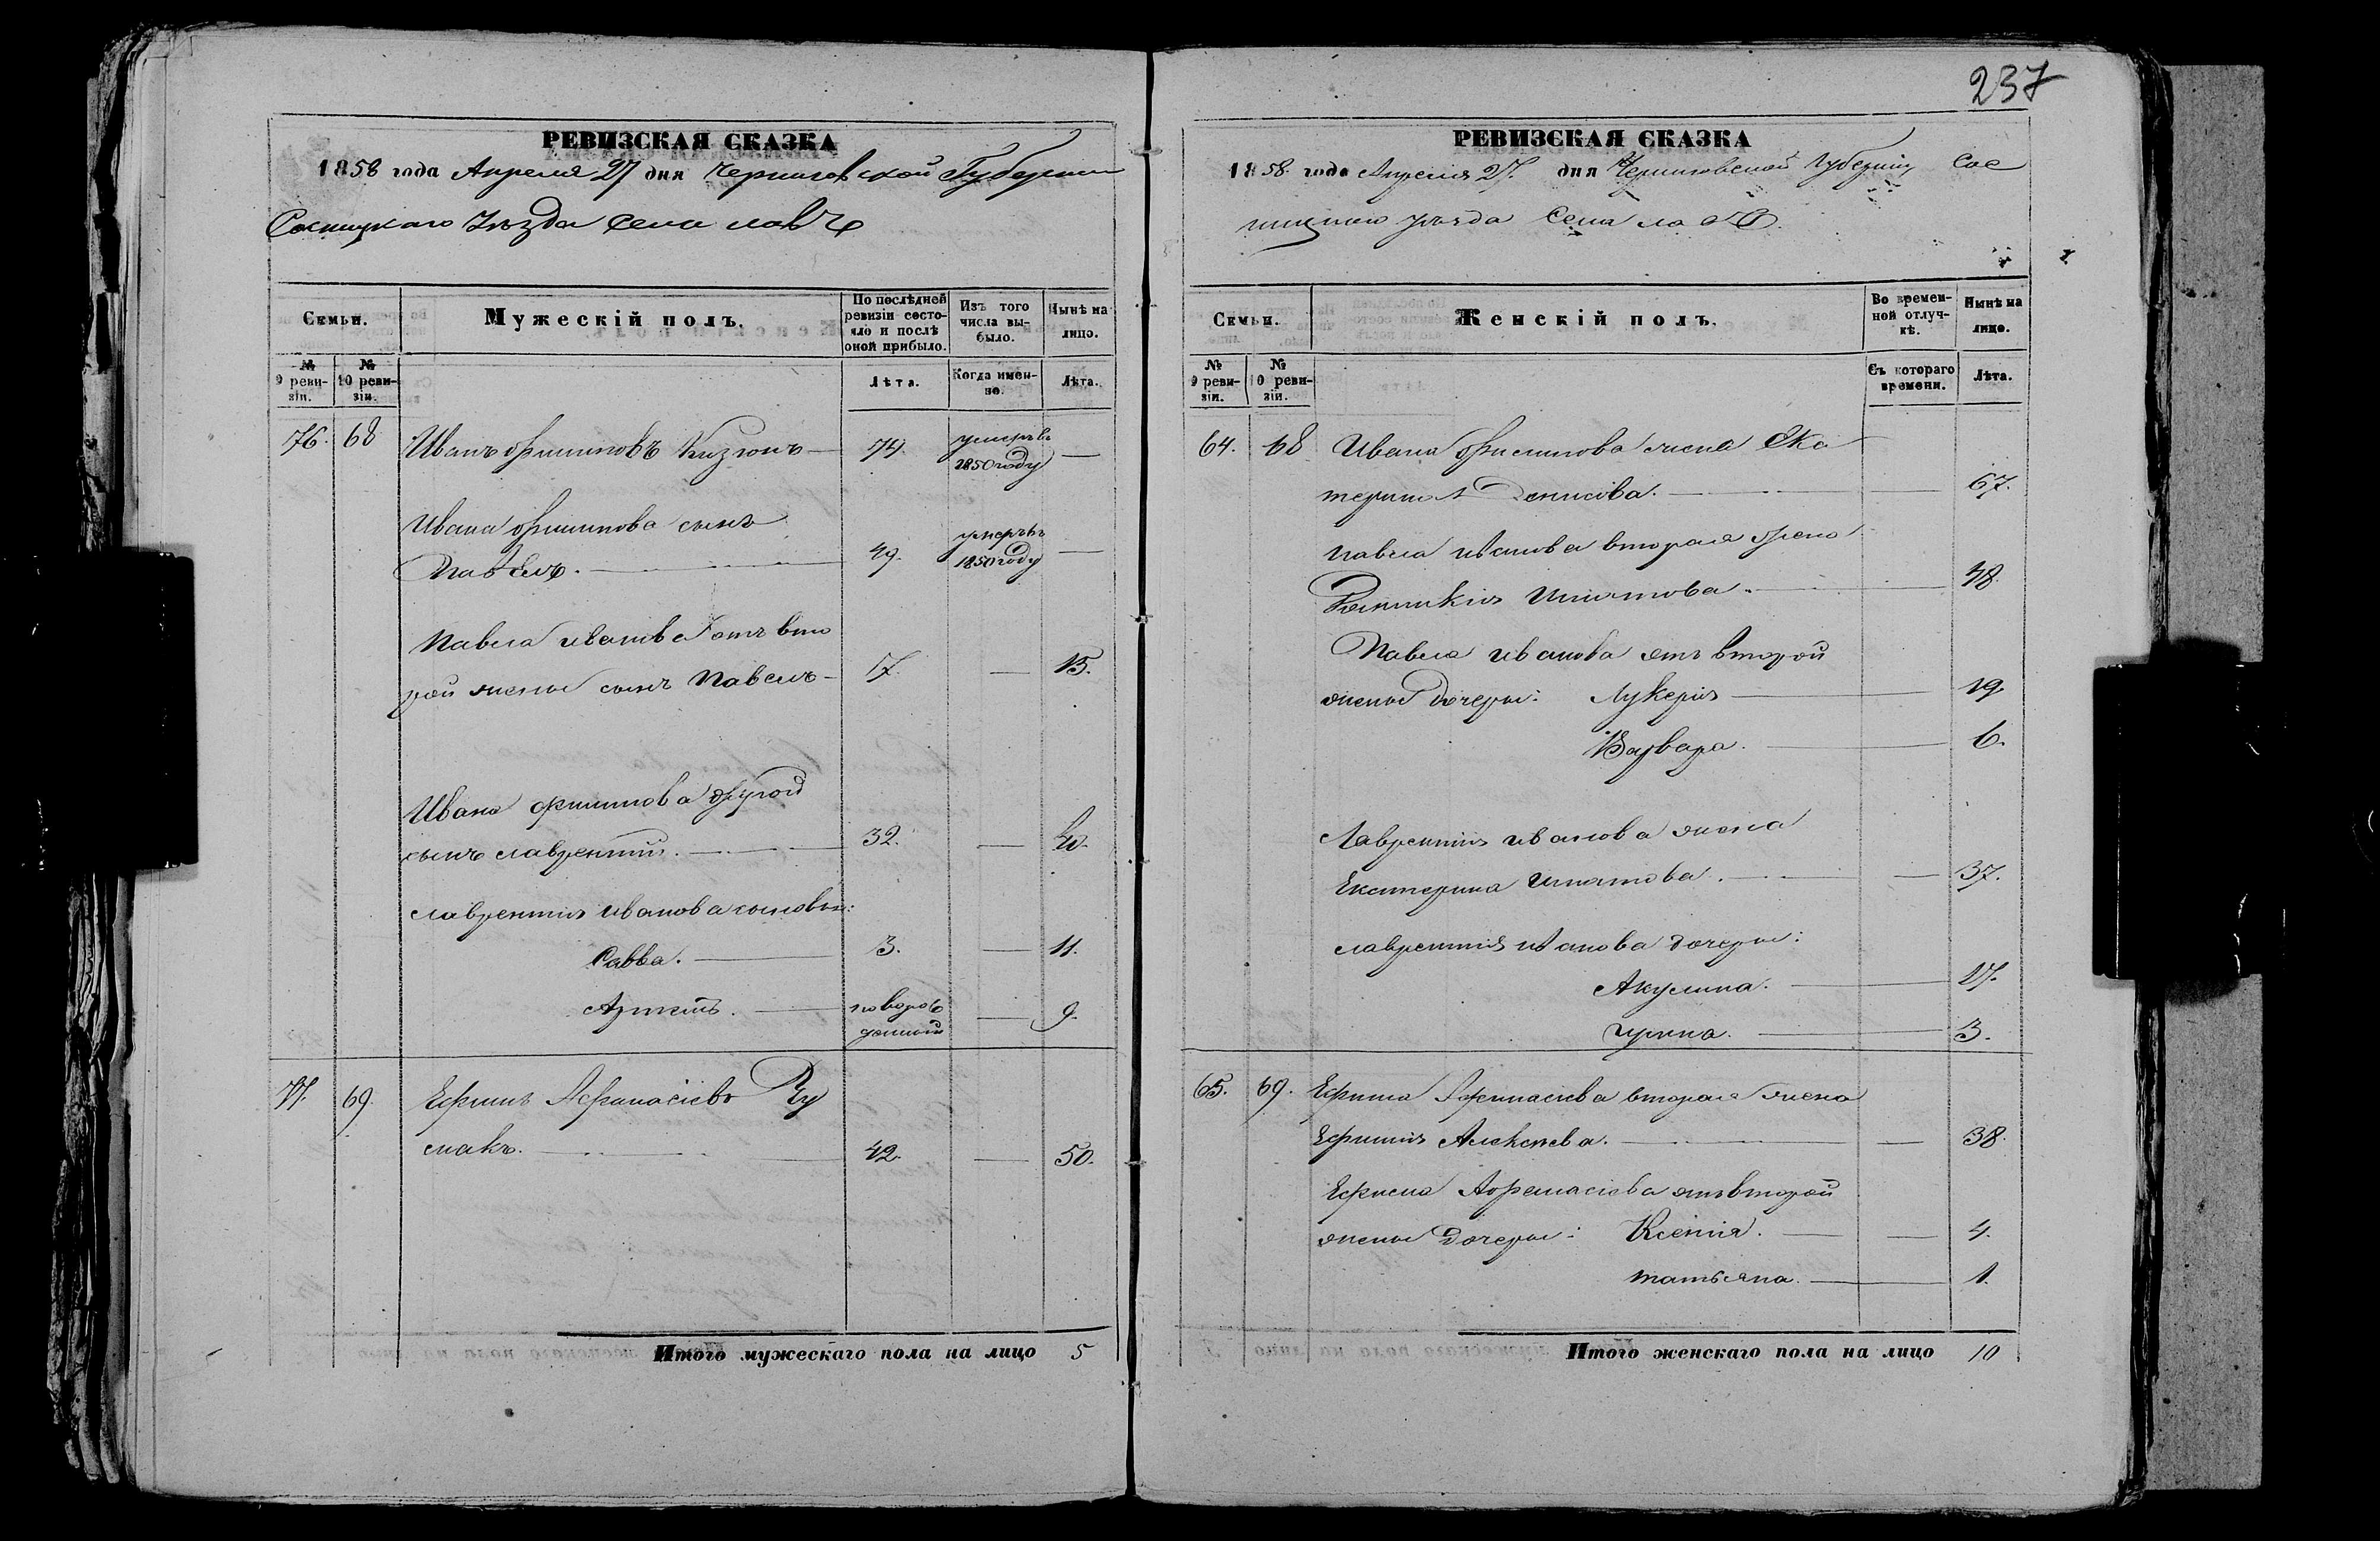 237
РЕВИЗСКАЯ СКАЗКА
1858 года Апреля 27 дня Черниговской Губернии
Сосницкаго Уѣзда Села Ловъ
Семьи.
Мужескій полъ.
По послѣдней ревизіи состояло и послѣ оной прибыло.
Изъ того числа выбыло.
Нынѣ на лицо.
№ 9 ревизіи.
№ 10 ревизіи.
Лѣта.
Когда именно.
Лѣта.
76. 68 Иванъ Филиповъ 74. умеръ въ 1850 году —
Ивана Филипова сынъ
Павелъ. 49. умеръ въ 1850 году —
Павла Иванова отъ вто
рой жены сынъ Павелъ 7. — 15.
Ивана Филипова другой
сынъ Лаврентий. 32. — 40.
Лаврентия Иванова сыновья:
Савва. 3. — 11.
Артемъ. новорож
денный — 9.
77. 69. Ефимъ Афанасіевъ Чу
макъ. 42. — 50.
Итого мужескаго пола на лицо 5
РЕВИЗСКАЯ СКАЗКА
1858 года Апреля 27. дня Черниговской Губерніи Сос
ницкаго уѣзда Села Ловъ.
Семьи.
Женскій полъ.
Во временной отлучкѣ.
Нынѣ на лицо.
№ 9 ревизіи.
№ 10 ревизіи.
Съ котораго времени.
Лѣта.
64. 68 Ивана Филипова жена Ека
терина Денисова. 67.
Павла Иванова вторая жена
Игнатова. 48.
Павла Иванова отъ второй
жены дочери: Лукерія 19.
Варвара. 6.
Лаврентия Иванова жена
Екатерина Игнатова. — 37.
Лаврентия Иванова дочери:
Акулина. 17.
Ирина. 3.
65. 69. Ефима Афанасіева вторая жена
Ефимия Алексѣева. — 38.
Ефима Афанасіева отъ второй
жены дочери: Ксенія. — 4.
Татьяна. 1.
Итого женскаго пола на лицо 10